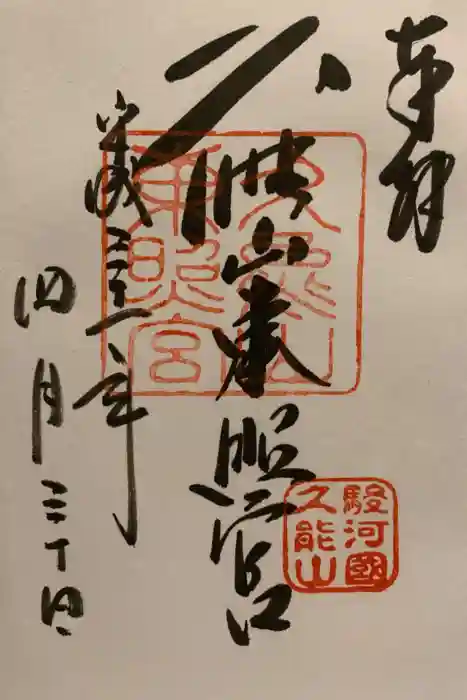 奉拝
久能山東照宮
平成三十一年
四月三十日
久能山東照宮
駿河國
久能山